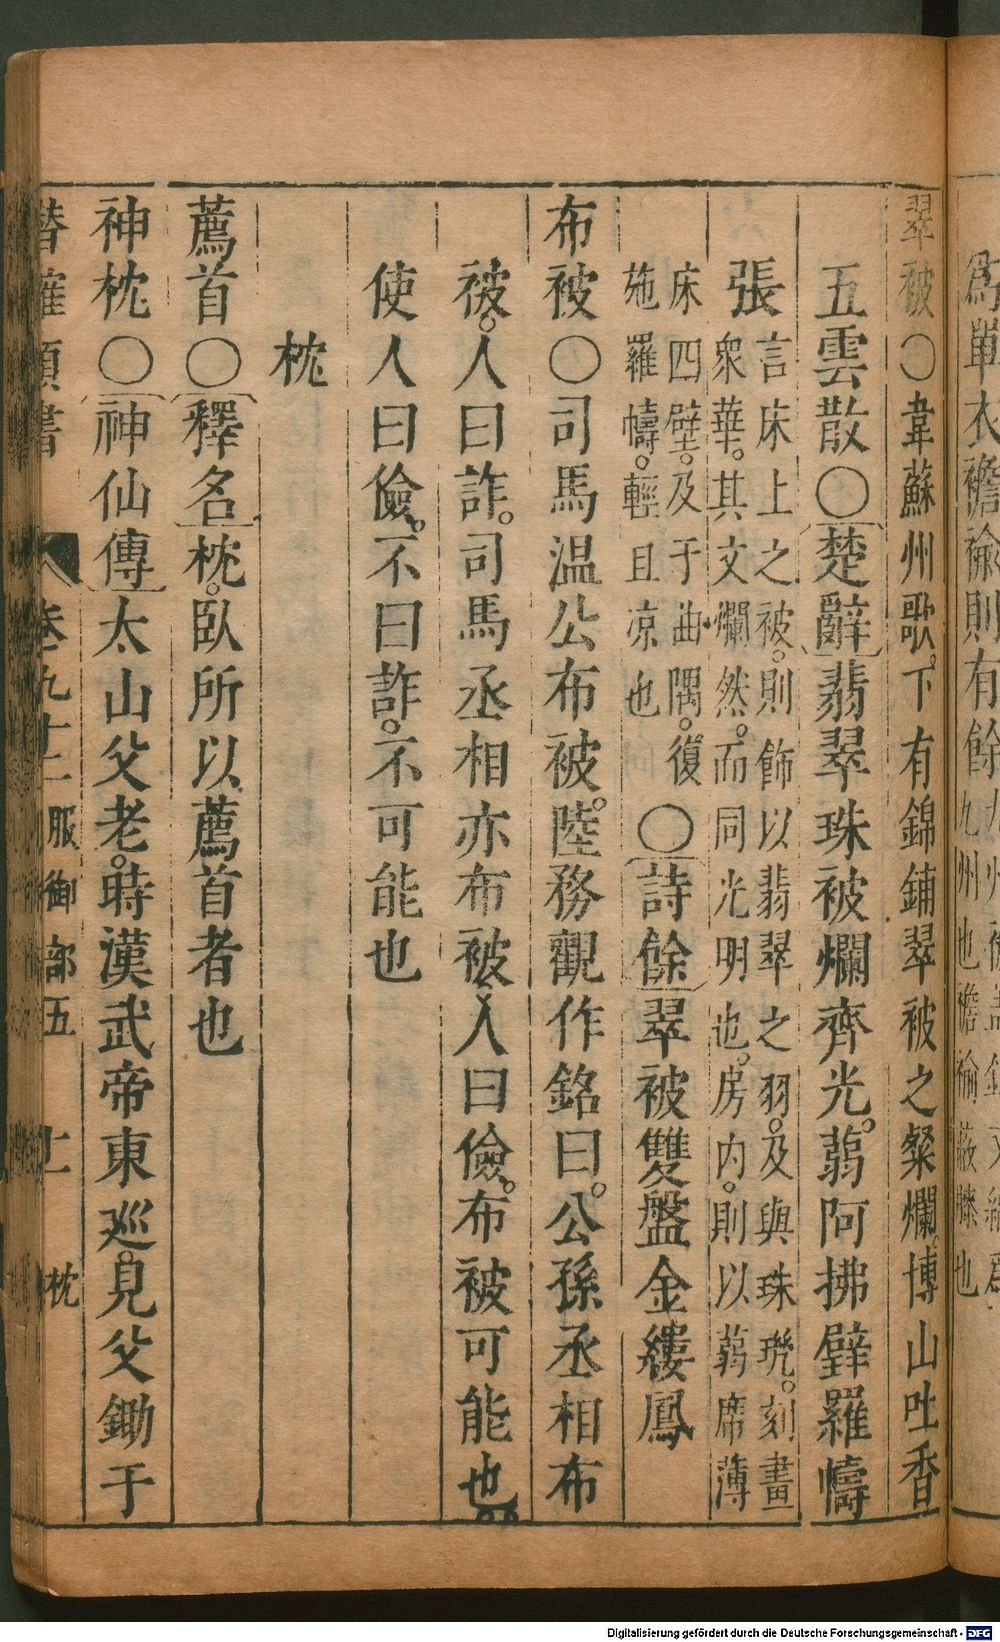 爲單衣襜褕則有餘
九州也襜褕蔽膝也
翠被〇韋蘇州歌。下有錦鋪翠被之粲爛。博山吐香
五雲散〇楚辭翡翠珠被爛齊光。蒻阿拂壁羅幬
張言床上之被。則飾以翡翠之羽。及與珠璣。刻畫
衆華。其文爛然。而同光明也。房内。則以蒻席薄
床四壁。及于曲隅。復
施羅幬。輕且凉也
〇詩餘翠被雙盤金縷鳳
布被〇司馬温公布被。陸務觀作銘曰。公孫丞相布
被。人曰詐。司馬丞相亦布被。人曰儉。布被可能也。
使人曰儉。不曰詐。不可能也
枕
薦首〇釋名枕。臥所以薦首者也
神枕〇神仙傳太山父老。時漢武帝東巡。見父鋤于
卷九十二 服御部五 十一 枕
Digitalisierung gefördert durch die Deutsche Forschungsgemeinschaft - DFG